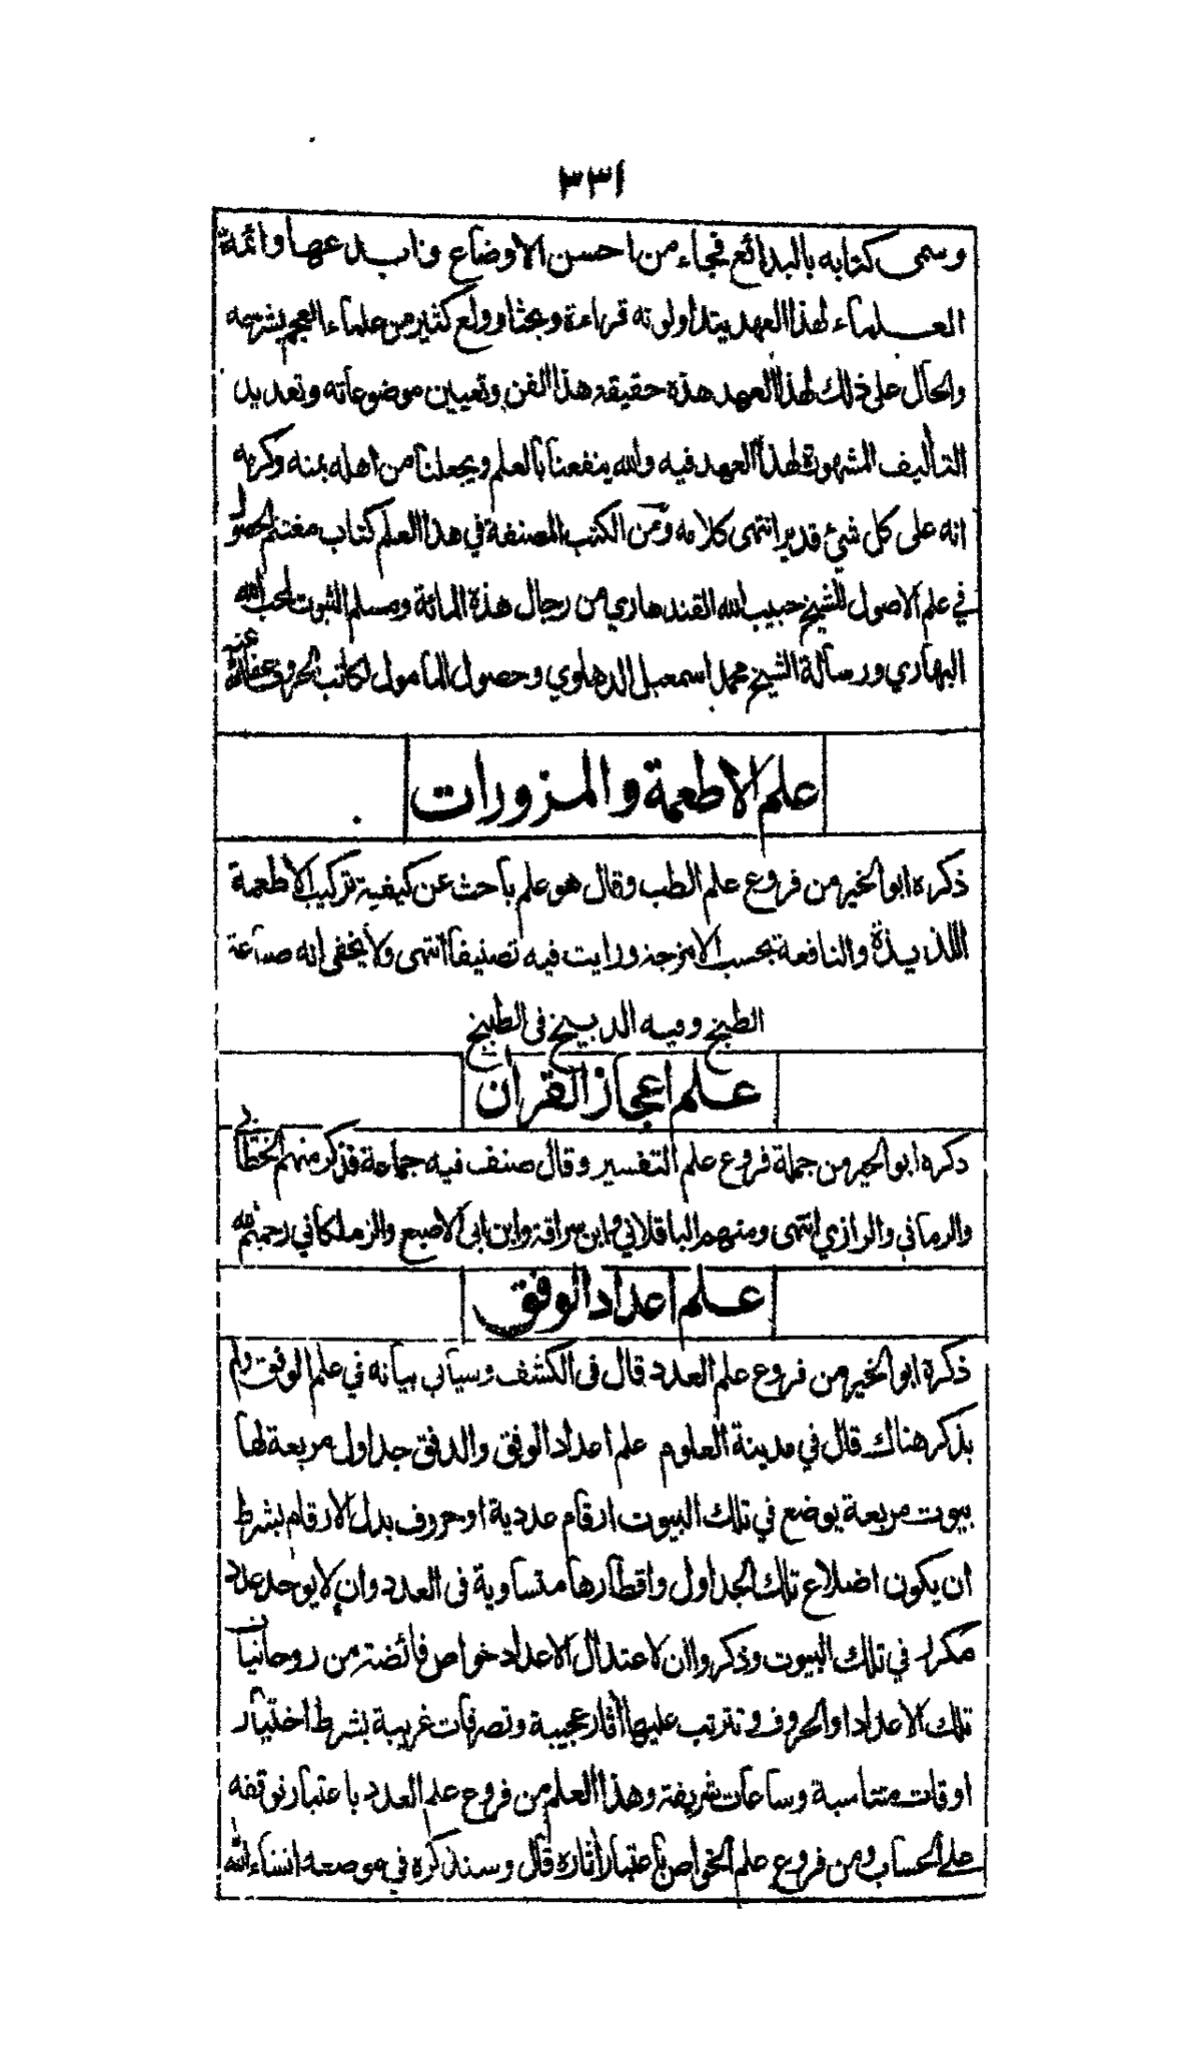 ٣٣١
وسمى كتابه بالبدائع فجاء من احسن الاوضاع وابدعها وائمة
العلماء لهذا العهد يتداولونه قراءة وبحثا وولع كثير من علماء العجم بشرحه
والحال على ذلك لهذا العهد هذه حقيقة هذا الفن وتعيين موضوعاته وتعديد
التأليف المشهورة لهذا العهد فيه والله ينفعنا بالعلم ويجعلنا من اهله بمنه وكرمه
انه على كل شئ قدير انتهى كلامه ومن الكتب المصنفة في هذا العلم كتاب مغتنم الحصول
في علم الاصول للشيخ حبيب الله القندهاري من رجال هذة المائة ومسلم الثبوت لمحب الله
البهاري ورسالة الشيخ محمد اسمعيل الدهلوي وحصول المامول لكاتب الحروف عفا الله عنه
علم الاطعمة والمزورات
ذكره ابو الخير من فروع علم الطب وقال هو علم باحث عن كيفية تركيب الاطعمة
اللذيذة والنافعة بحسب الامزجة ورايت فيه تصنيفا انتهى ولا يخفى انه صناعة
الطبخ وفيه الدبيخ فى الطبيخ
علم اعجاز القران
ذكره ابو الخير من جملة فروع علم التفسير وقال صنف فيه جماعة فذكر منهم الخطابي
والرماني والرازي انتهى ومنهم الباقلاني وابن سراقة وابن ابى الاصبع والزملكاني رحمهم الله
علم اعداد الوفق
ذكرة ابو الخير من فروع علم العدد قال فى الكشف وسيأتي بيانه في علم الوفق ولم
يذكر هناك قال في مدينة العلوم علم اعداد الوفق والوفق جداول مربعة لها
بيوت مربعة يوضع في تلك البيوت ارقام عددية او حروف بدل الارقام بشرط
ان يكون اضلاع تلك الجداول واقطارها متساوية فى العدد وان لا يوجد عدد
مكرر في تلك البيوت وذكروا ان لاعتدال الاعداد خواص فائضة من روحانيات
تلك الاعداد او الحروف وتترتب عليها اثار عجيبة وتصرفات غريبة بشرط اختيار
اوقات متناسبة وساعات شريفة وهذا العلم من فروع علم العدد باعتبار توقفه
على الحساب ومن فروع علم الخواص باعتبار اثاره قال وسنذكرة في موضعه انشاء الله